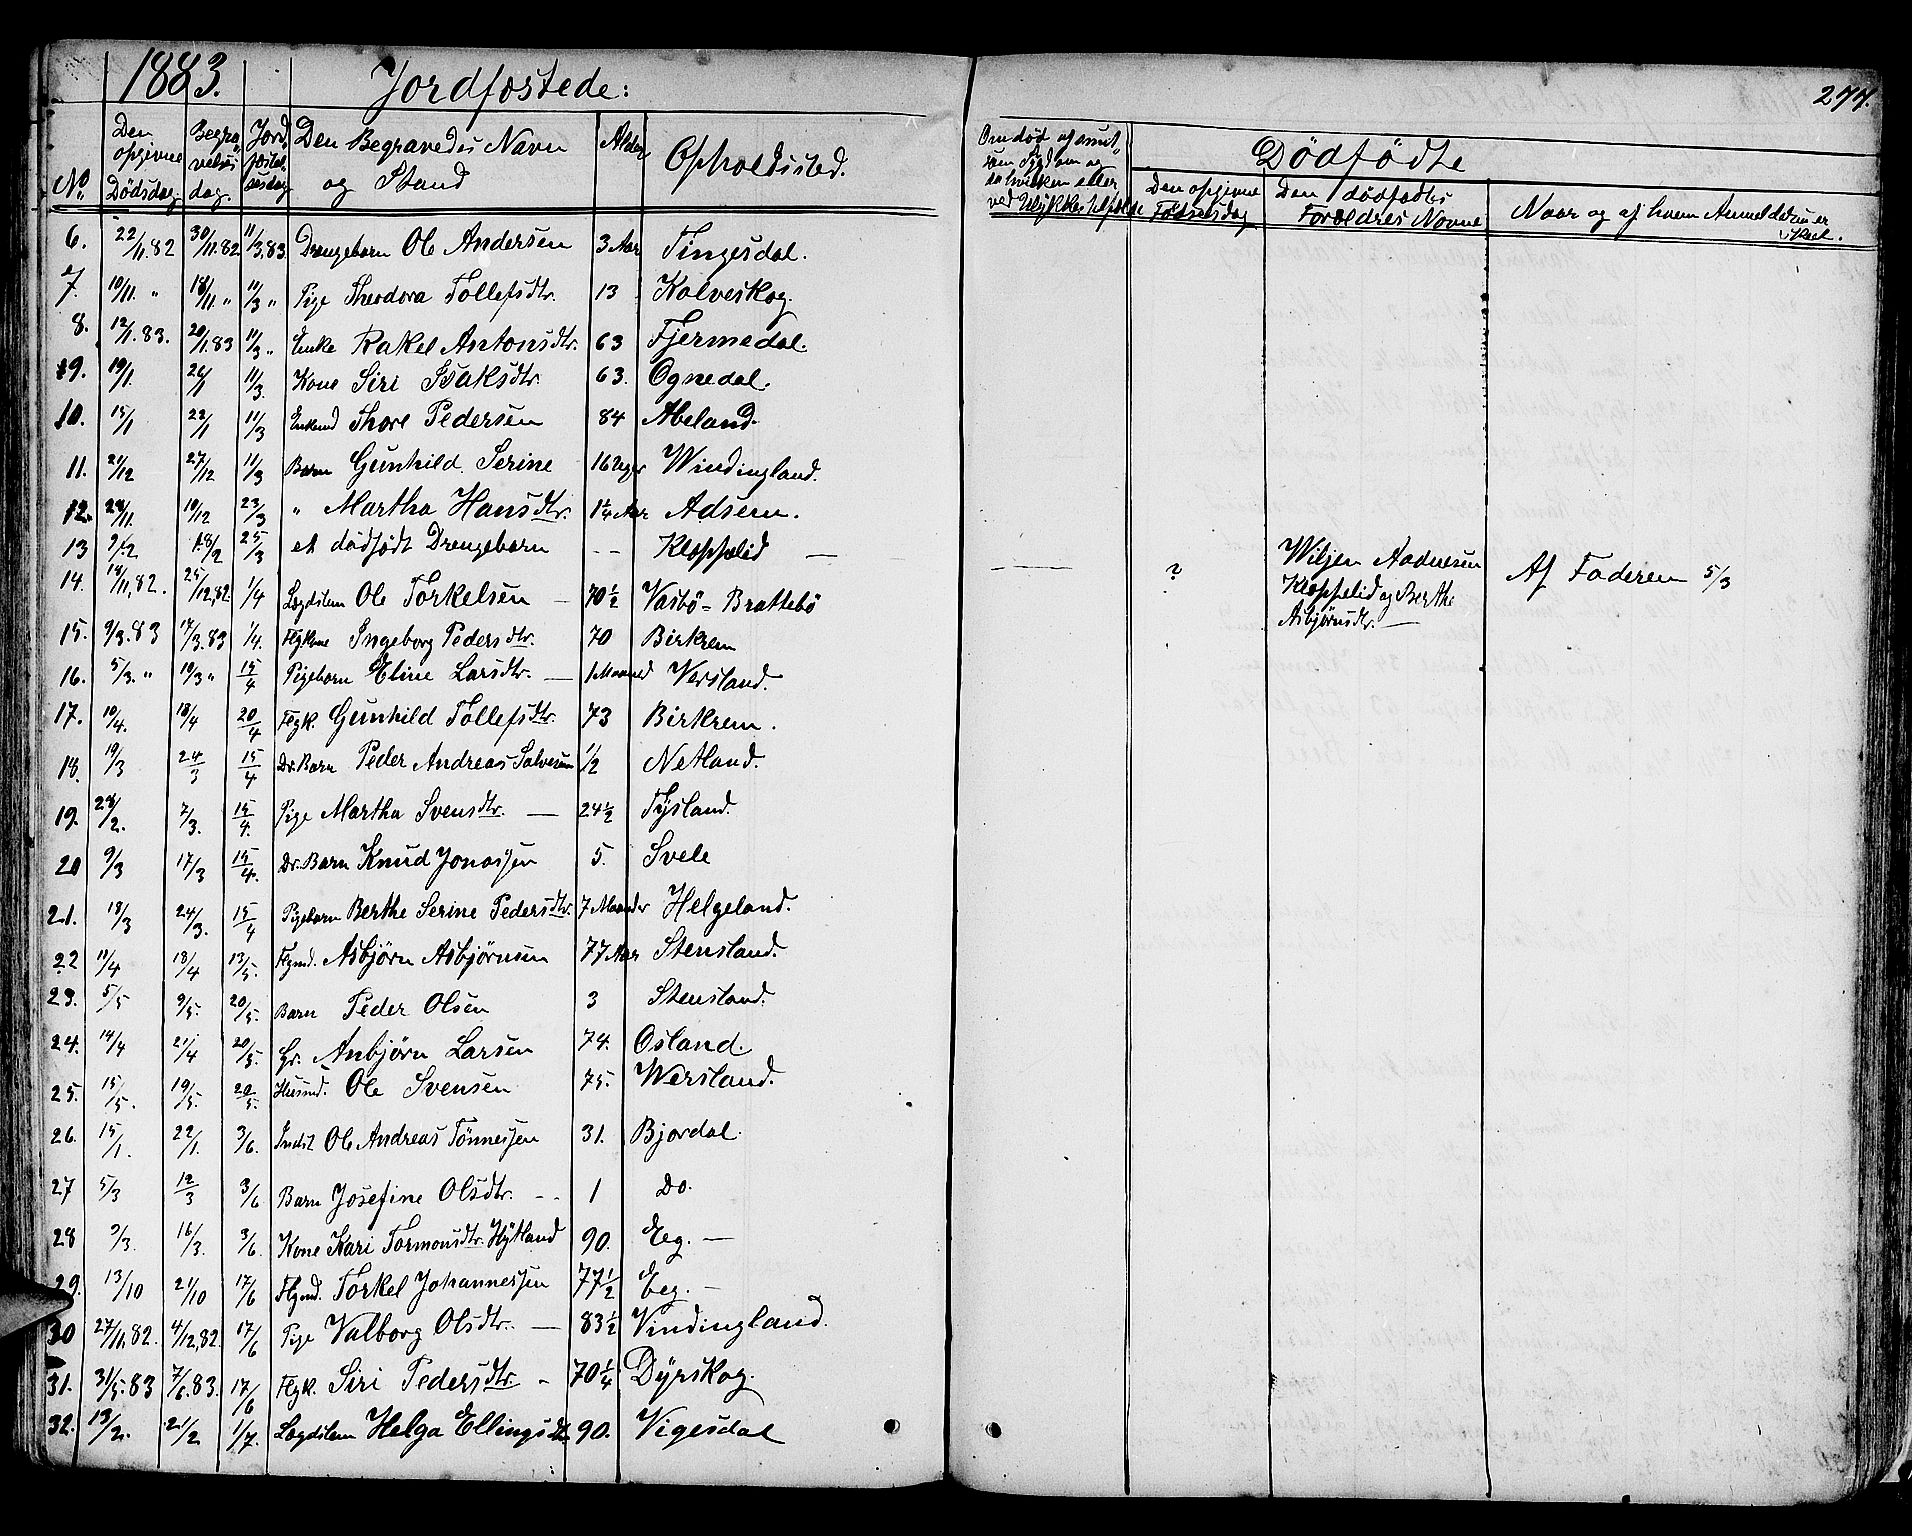 1883.
Jordfæstede:
277.
No. Den opgivne Dødsdag. Begravelsesdag. Jordfæstelsesdag Den Begravedes Navn og Stand Alder Opholdssted. Om død af smitsom Sygdom og da hvilken eller ved Ulykkestilfælde Dödfödte Den opgivne Fødselsdag Den dødfødtes Forældres Navne Naar og af hvem Anmeldelse er skeet.
6. 22/11.82 30/11.82 11/3.83 Drengebarn Ole Andersen 3 Aar Tingesdal.
7. 10/11. " 18/11 " 11/3 " Pige Theodora Tollefsdtr. 13 Kolveskog.
8. 12/1.83. 20/1.83 11/3 " Enke Rakel Antonsdtr. 63 Fjermedal.
9. 19/1. 26/1 11/3. Kone Siri Isaksdtr. 63. Ognedal.
10. 15/1 22/1 11/3 Enkemd Thore Pedersen 84 Abeland.
11. 21/12 27/12 11/3 Barn Gunhild Serine 16 Uger Windingland.
12. 28/11. 10/12 23/3 " Martha Hansdtr. 1 1/4 Aar Adsem.
13 9/2 18/2 25/3 et dödfödt Drengebarn - - Kloppelid — ? Wiljen Aadnesen Kloppelid og Berthe Asbjørnsdtr. — Af Faderen 5/3
14. 18/11,82. 25/12,82 1/4 Lægdslem Ole Torkelsen — 70 1/2 Vasbö - Brattebö
15. 9/3.83 17/3.83 1/4. Flgkone Ingeborg Pedersdtr. 70 Birkrem
16. 5/3. " 10/3 " 15/4 Pigebarn Eline Larsdtr. — 1 Maaned Versland.
17. 10/4. 18/4 20/4 Flgk. Gunhild Tollefsdtr. 73 Birkrem.
18. 19/3 24/3 15/4 Dr.Barn Peder Andreas Salvesen 1/2 Netland.
19. 28/2. 7/3. 15/4. Pige Martha Svensdtr. — 24 1/2 Tysland.
20 9/3 17/3 15/4. Dr.Barn Knud Jonassen 5. Svele
21. 18/3 24/3. 15/4 Pigebarn Berthe Serine Pedersdtr. 7 Maaneder Helgeland.
22 11/4 18/4 13/5. Flgmd. Asbjørn Asbjørnsen 77 Aar Stensland.
23. 5/5 9/5. 20/5. Barn Peder Olsen 3 Stensland.
24. 14/4 21/4 20/5. Gr. Anbjörn Larsen 74. Osland.
25. 15/5. 19/5. 20/5. Husmd. Ole Svensen 75. Wersland.
26. 15/1. 22/1. 3/6. Indst Ole Andreas Tönnessen 31. Bjordal.
27 5/3 12/3 3/6 Barn Josefine Olsdtr. - - 1 Do.
28 9/3. 16/3. 3/6. Kone Kari Tormonsdtr. Hytland 90. Eeg. —
29. 13/10 21/10 17/6 Flgmd. Torkel Johannessen 77 1/2 Eeg. —
30 27/11,82. 4/12,82 17/6 Pige Valborg Olsdtr. — 83 1/2 Vindingland.
31. 31/5.83 7/6.83. 17/6 Flgk. Siri Pedersdtr. - 70 1/4 Dyrskog.
32. 13/2. 21/2 1/7. Lægdslem Helga Ellingsdtr. 90. Vigesdal